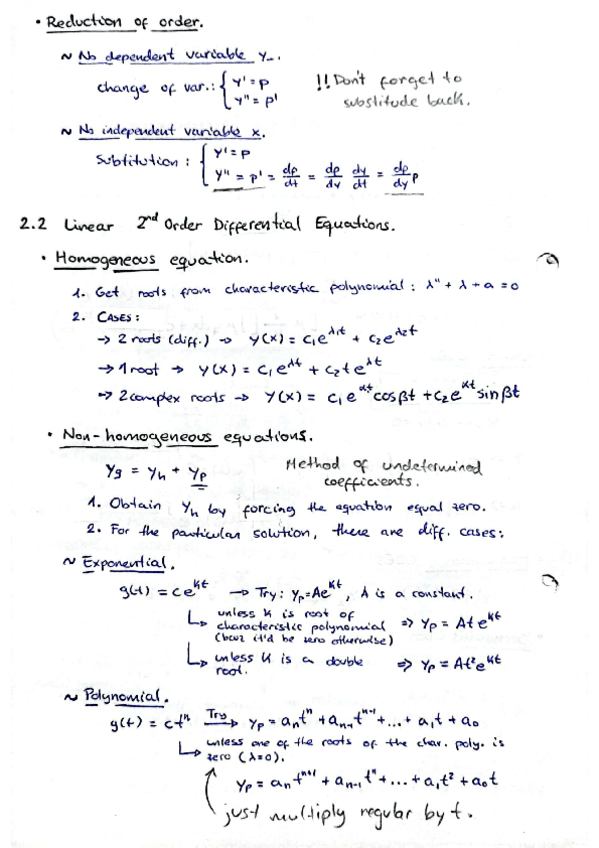 • Reduction of order.
~ No dependent variable y.
change of var.: { y' = p
y'' = p'
!! Don't forget to
substitude back.
~ No independent variable x.
Subtitution: { y' = p
y'' = p' = dp/dt = dp/dy dy/dt = dp/dy p
2.2 Linear 2nd Order Differential Equations.
• Homogeneous equation.
1. Get roots from characteristic polynomial: λ'' + λ + a = 0
2. CASES:
→ 2 roots (diff.) → y(x) = c₁e^λ₁t + c₂e^λ₂t
→ 1 root → y(x) = c₁e^λt + c₂te^λt
→ 2 complex roots → y(x) = c₁e^αt cosβt + c₂e^αt sinβt
• Non-homogeneous equations.
yg = yh + yp
Method of undetermined
coefficients.
1. Obtain yh by forcing the equation equal zero.
2. For the particular solution, there are diff. cases:
~ Exponential.
g(t) = ce^kt → Try: yp = Ae^kt, A is a constant.
unless k is root of
characteristic polynomial ⇒ yp = Ate^kt
(bcuz it'd be zero otherwise)
unless k is a double ⇒ yp = At²e^kt
root.
~ Polynomial.
g(t) = ct^n Try→ yp = aₙt^n + aₙ₋₁t^n-1 + ... + a₁t + a₀
unless one of the roots of the char. poly. is
zero (λ=0).
yp = aₙt^n+1 + aₙ₋₁t^n + ... + a₁t² + a₀t
just multiply regular by t.